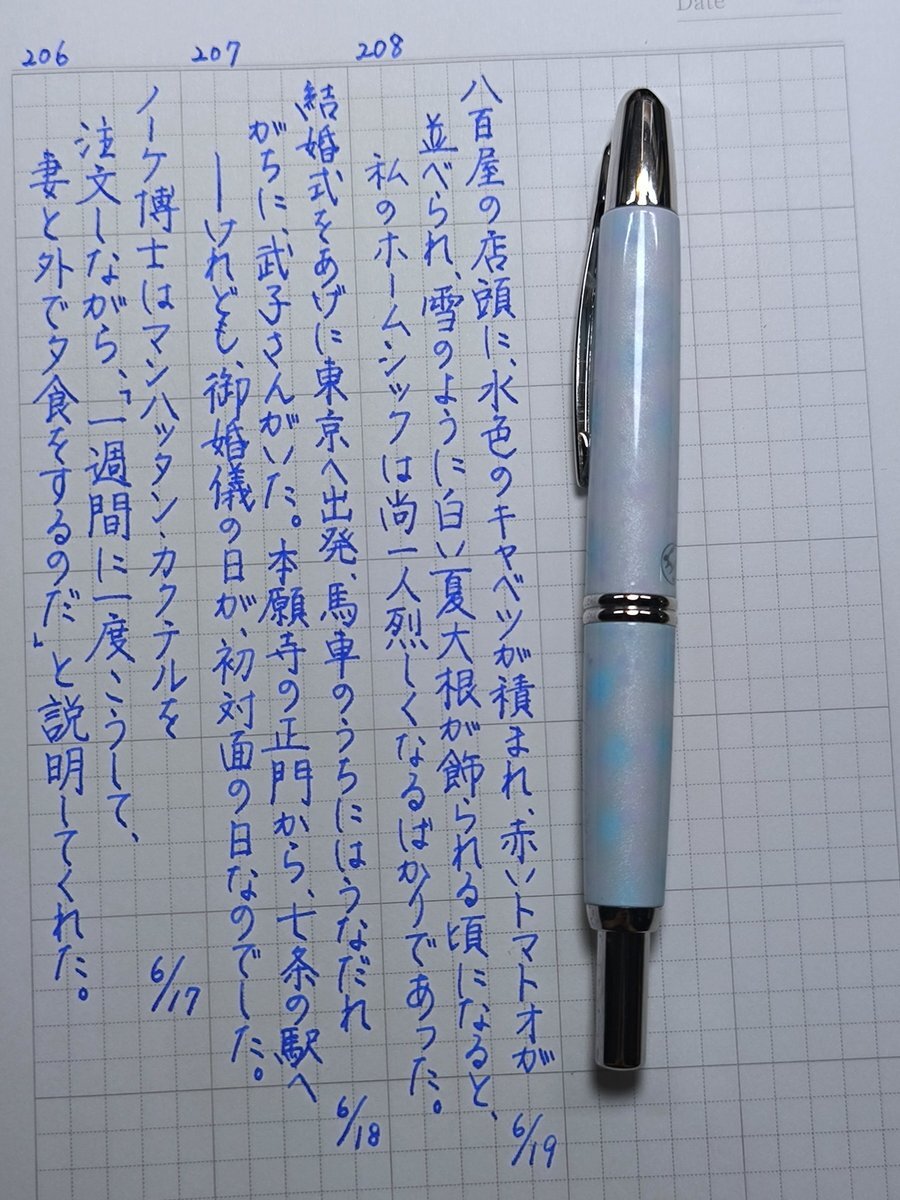 Date
208
八百屋の店頭に、水色のキャベツが積まれ、赤いトマトオが
並べられ、雪のように白い夏大根が飾られる頃になると、
私のホームシックは尚一人烈しくなるばかりであった。
6/19
207
結婚式をあげに東京へ出発、馬車のうちにはうなだれ
がちに、武子さんがいた。本願寺の正門から、七条の駅へ
――けれども、御婚儀の日が、初対面の日なのでした。
6/18
206
ノーケ博士はマンハッタン・カクテルを
注文しながら、「一週間に一度こうして、
妻と外で夕食をするのだ」と説明してくれた。
6/17